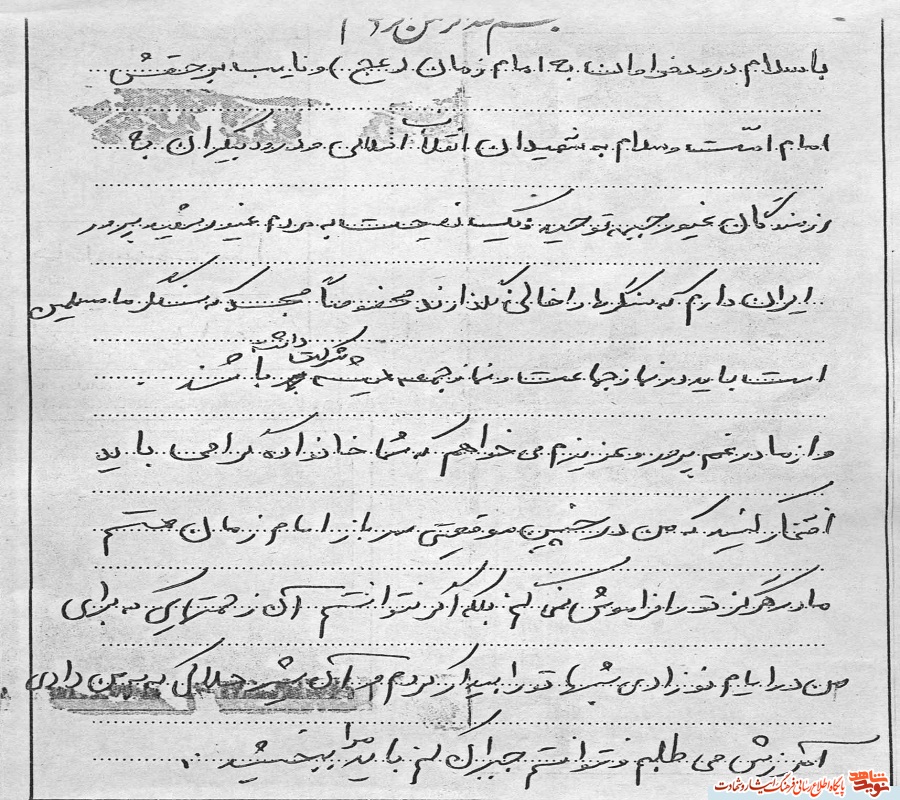 بسم الله الرحمن الرحیم
با سلام درود فراوان به امام زمان (عج) و نایب برحقش
امام امّت و سلام به شهیدان انقلاب اسلامی و درود بیکران به
رزمندگان غیور جبهه توحید و یکسان نصیحت به مردم غیور شهید پرور
ایران دارم که سنگرها را خالی نگذارند مخصوصاً مسجد که سنگر ما مسلمین
است باید در نماز جماعت و نماز جمعه همیشه شرکت داشته باشند.
و از مادر غم پرور و عزیزم می خواهم که شما خانواده گرامی باید
افتخار کنید که من در چنین موقعیتی سرباز امام زمان هستم
مادر هرگز تو را فراموش نمی کنم بلکه اگر نتوانستم آن زحمتهایی که برای
من در ایام نوزادی شبها تو را بیدار کردم و آن شیر حلالی که به من دادی
آمرزش می طلبم نتوانستم جبران کنم باید مرا ببخشید.
نوید شاهد
پایگاه اطلاع رسانی فرهنگ ایثار و شهادت